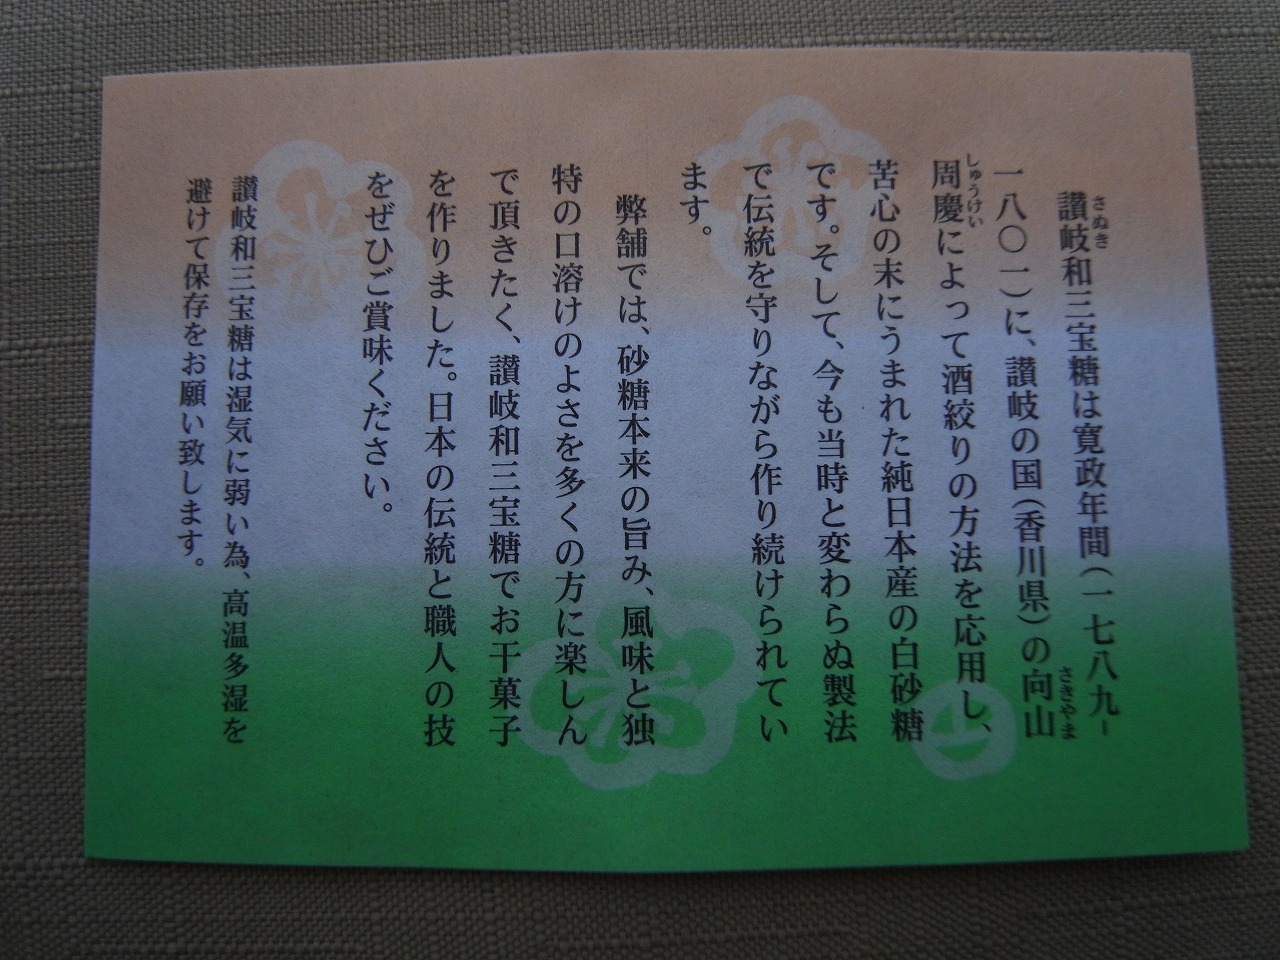 讃岐和三宝糖は寛政年間(一七八九-
一八〇一)に、讃岐の国(香川県)の向山
周慶によって酒絞りの方法を応用し、
苦心の末にうまれた純日本産の白砂糖
です。そして、今も当時と変わらぬ製法
で伝統を守りながら作り続けられてい
ます。
弊舗では、砂糖本来の旨み、風味と独
特の口溶けのよさを多くの方に楽しん
で頂きたく、讃岐和三宝糖でお干菓子
を作りました。日本の伝統と職人の技
をぜひご賞味ください。
讃岐和三宝糖は湿気に弱い為、高温多湿を
避けて保存をお願い致します。
さぬき
さきやま
しゅうけい